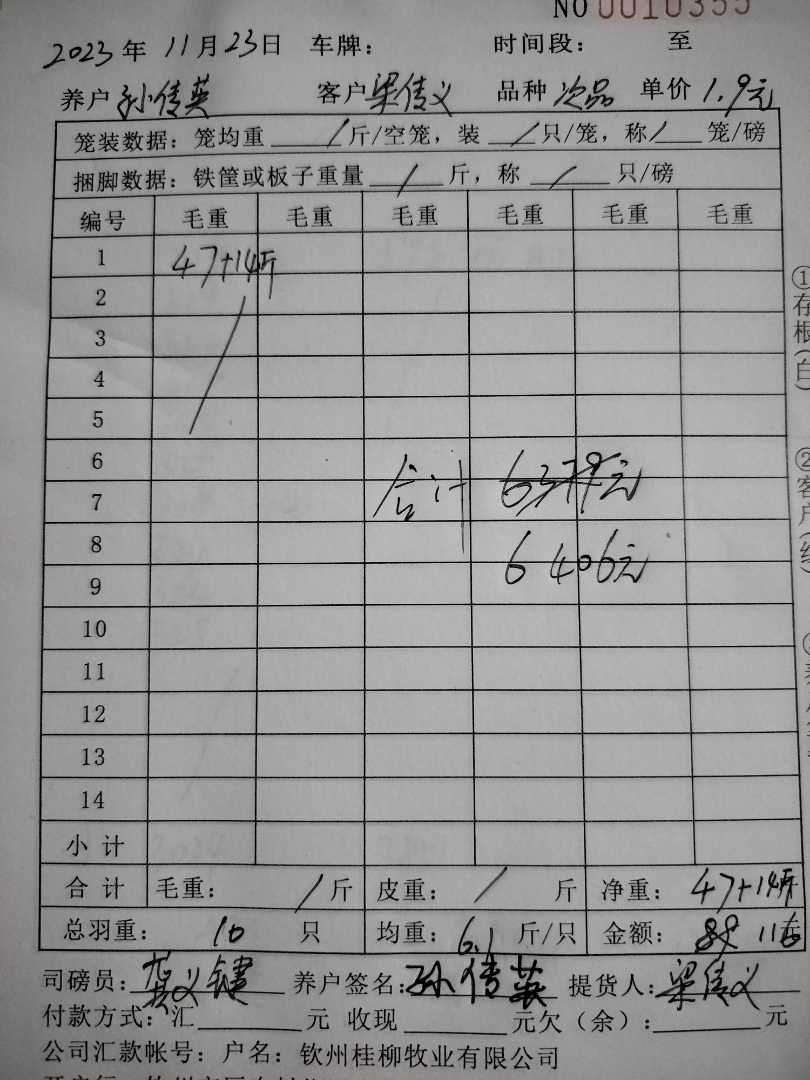 NO 0010355
2023年 11月23日 车牌： 时间段： 至
养户孙倩英 客户梁倩义 品种 次品 单价 1.9元
笼装数据：笼均重 / 斤/空笼，装 / 只/笼，称 / 笼/磅
捆脚数据：铁筐或板子重量 / 斤，称 / 只/磅
编号 毛重 毛重 毛重 毛重 毛重 毛重
1 47+14斤
2
3
4
5
6
合计 6379元
7
8
6406元
9
10
11
12
13
14
小计
合计 毛重： / 斤 皮重： / 斤 净重： 47+14斤
总羽重： 10 只 均重： 6.1 斤/只 金额： 116
司磅员： 养户签名：孙倩英 提货人：梁倩义
付款方式：汇 元 收现 元欠（余）： 元
公司汇款帐号：户名：钦州桂柳牧业有限公司
①存根(白)
②客户(红)